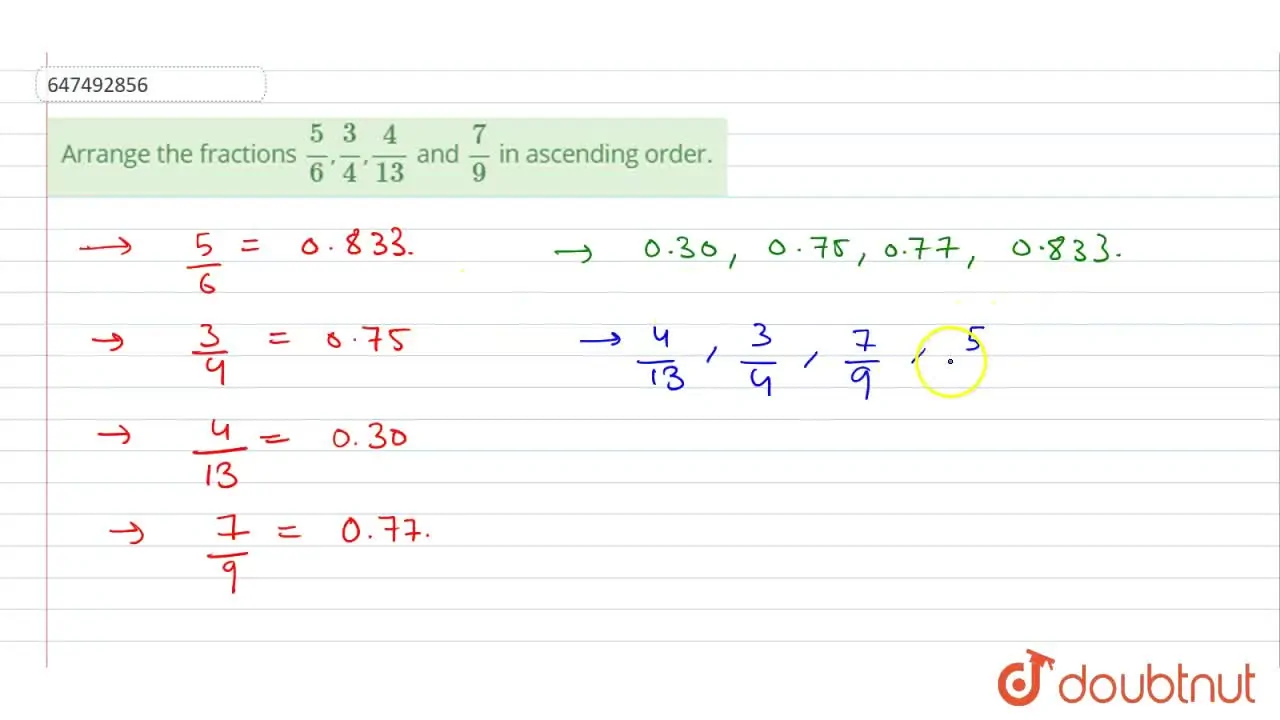 647492856
Arrange the fractions 5/6, 3/4, 4/13 and 7/9 in ascending order.
→ 5/6 = 0.833.
→ 3/4 = 0.75
→ 4/13 = 0.30
→ 7/9 = 0.77.
→ 0.30, 0.75, 0.77, 0.833.
→ 4/13, 3/4, 7/9, 5
doubtnut